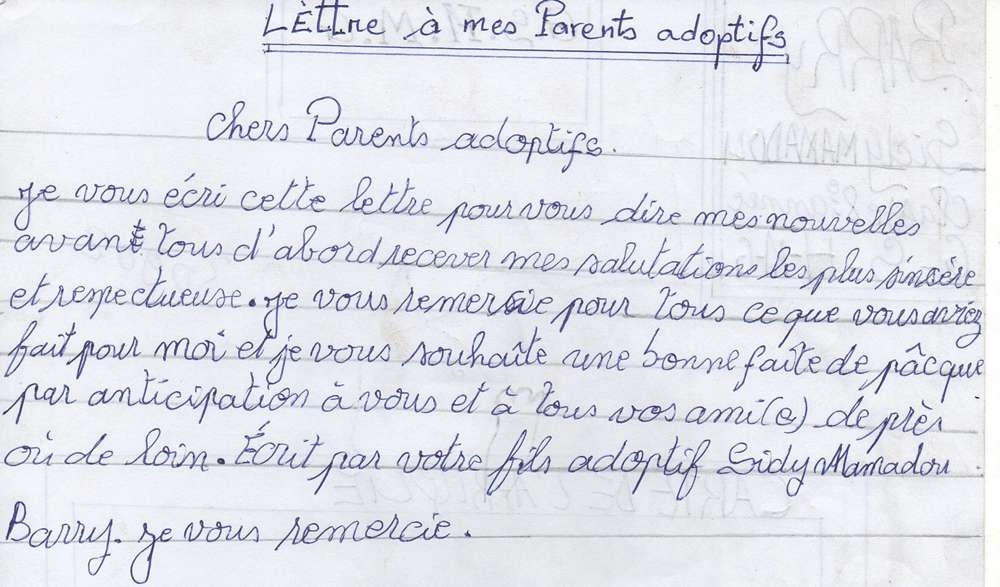 LÈttre à mes Parents adoptifs
chers Parents adoptifs.
je vous écri cette lettre pour vous dire mes nouvelles
avant tous d'abord recever mes salutations les plus sincère
et respectueuse. je vous remercie pour tous ce que vous avriez
fait pour moi et je vous souhaîte une bonne faite de pâcque
par anticipation à vous et à tous vos ami(e) de près
où de loin. Écrit par votre fils adoptif Sidy Mamadou
Barry. je vous remercie.